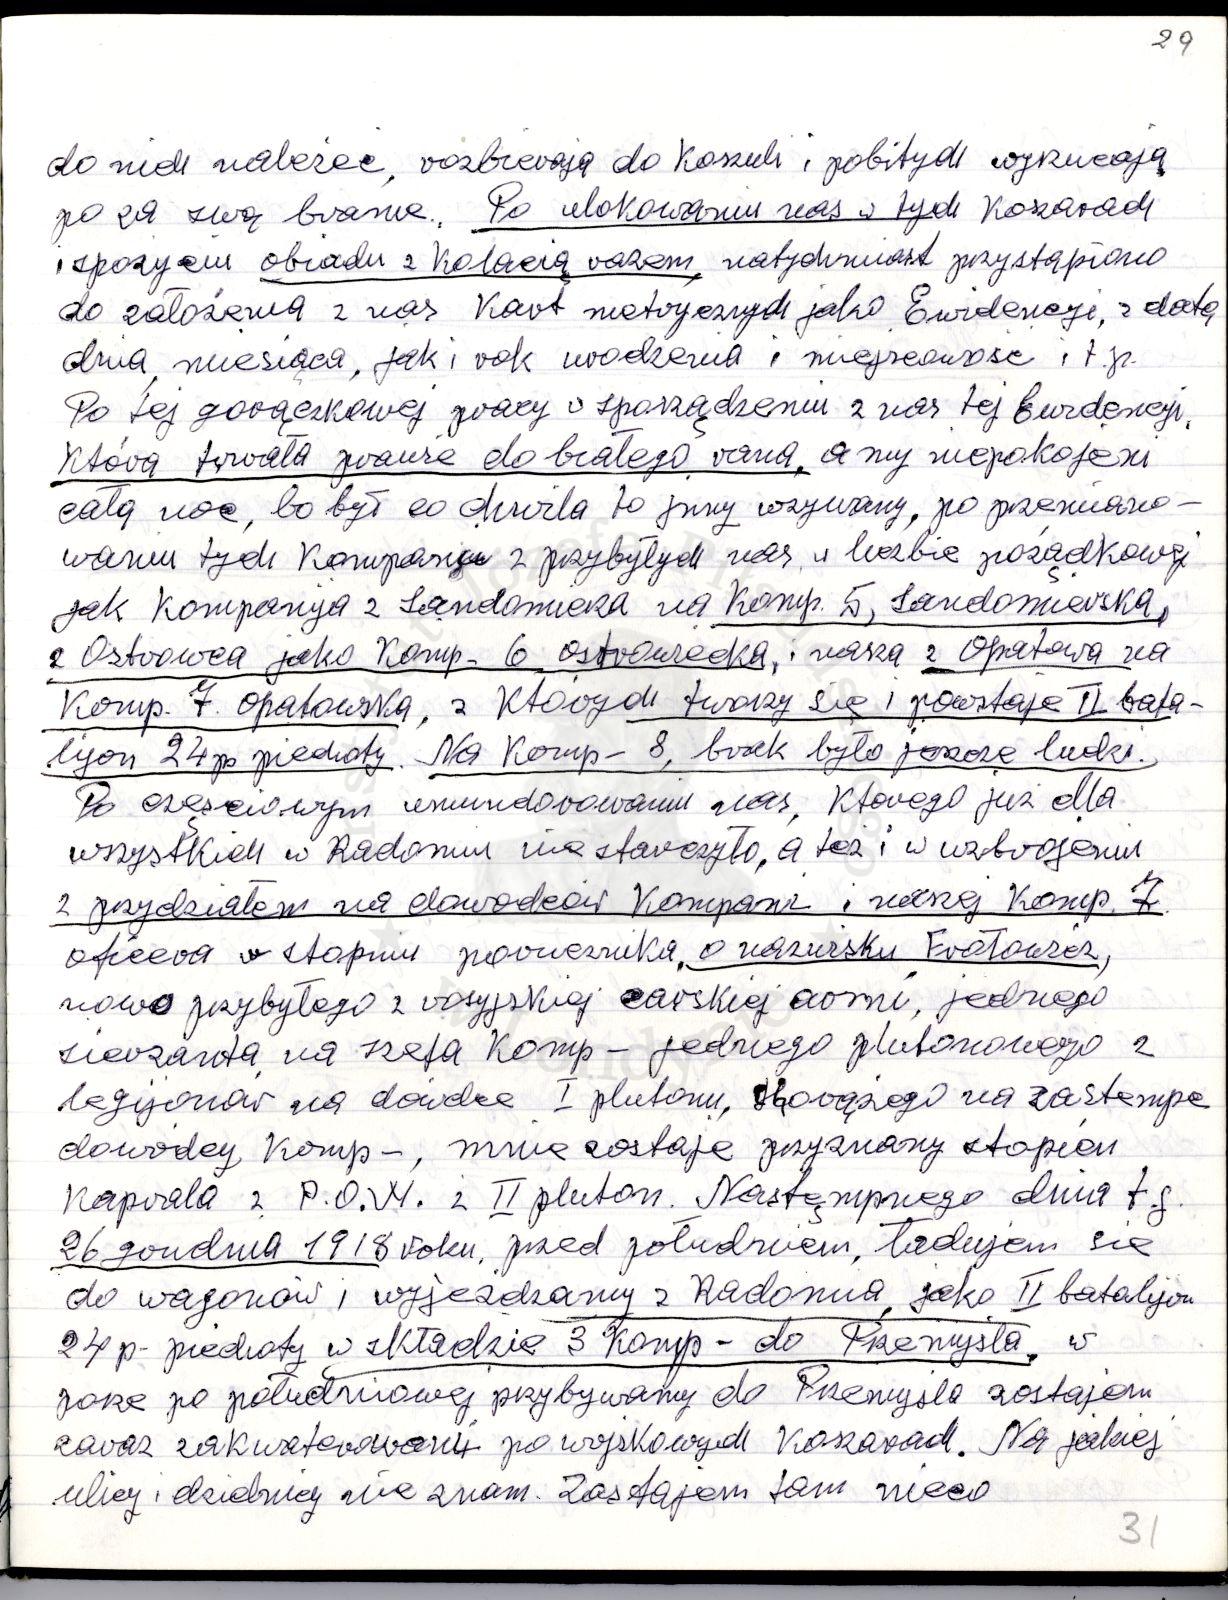 29
do nich należeć, rozbierają do Koszuli i pobitych wyrzucają
po za swą bramę. Po ulokowaniu nas w tych Koszarach
i spożyciu obiadu z Kolacią razem, natychmiast przystąpiono
do założenia z nas Kart metrycznych jako Ewidencyi, z datą
dnia, miesiąca, jak i rok urodzenia i miejscowość i t.p.
Po tej gorączkowej pracy o sporządzeniu z nas tej Ewidencyi,
Która trwała prawie do białego rana, a my niepokojeni
całą noc, bo był co chwila to jnny wzywany, po przemiano-
waniu tych Kompanij z przybyłych nas, w liczbie porządkowej
jak Kompanija z Sandomierza na Komp. 5, Sandomierska,
z Ostrowca jako Komp- 6 ostrowiecka, i nasza z Opatowa na
Komp. 7. opatowska, z Których tworzy się i powstaje II bata-
lijon 24 p piechoty. Na Komp- 8, brak było jeszcze ludzi.
Po częściowym umundorowaniu nas, Którego już dla
wszystkich w Radomiu nie starczyło, a też i w uzbrojeniu
z przydziałem na dowódców Kompani i naszej Komp. 7.
oficera w stopniu porucznika, o nazwisku Frołowicz,
nowo przybyłego z rosyjskiej carskiej armi, jednego
sierżanta na szefa Komp- jednego plutonowego z
legijonów na dówdce I plutonu, zbovążego na zastempce
dowódcy Komp-, mnie zostaje przyznany stopień
Kaprala z P.O.W. i II pluton. Nastęmpnego dnia t.j.
26 grudnia 1918 roku, przed południem, ładujem się
do wagonów i wyjeżdzamy z Radomia, jako II batalijon
24 p- piechoty w składzie 3 Komp- do Przemyśla, w
porze po południowej przybywamy do Przemyśla zostajem
zaraz zakwaterowani po wojskowych Koszarach. Na jakiej
ulicy i dzielnicy nie znam. Zastajem tam nieco
31